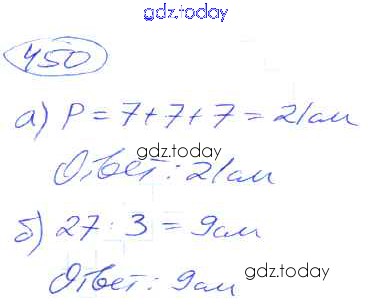 gdz.today
450
а) P = 7 + 7 + 7 = 21 см
gdz.today
Ответ: 21 см
б) 27 : 3 = 9 см
gdz.today
Ответ: 9 см